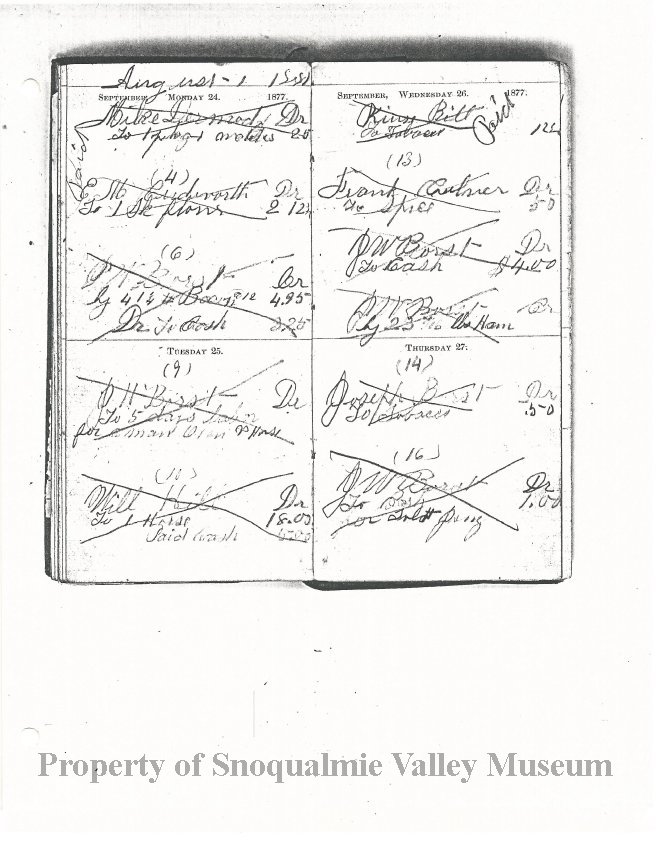 August 1 1881
SEPTEMBER, MONDAY 24. 1877.
Mike Dr
To 1 plug 20
Paid
(4)
E M Cudworth Dr
To 1 Sk flour 2 12½
(6)
J W Borst Cr
By 41¼ # Bacon 12 4.95
Dr To Cash 2.25
TUESDAY 25.
(9)
J W Borst Dr
To 5 days labor
for man Oxen & Horse
Will Dr
To 1 Horse 18.00
Paid Cash
SEPTEMBER, WEDNESDAY 26. 1877.
Paid
To Tobacco 12½
(13)
Frank Dr
To Spice 50
J W Borst Dr
To Cash $4.00
J W Borst Cr
By 23 lbs Ham
THURSDAY 27.
(14)
Joseph Borst Dr
To Tobacco .50
(16)
J W Borst Dr
To Cash 1.00
for
Property of Snoqualmie Valley Museum